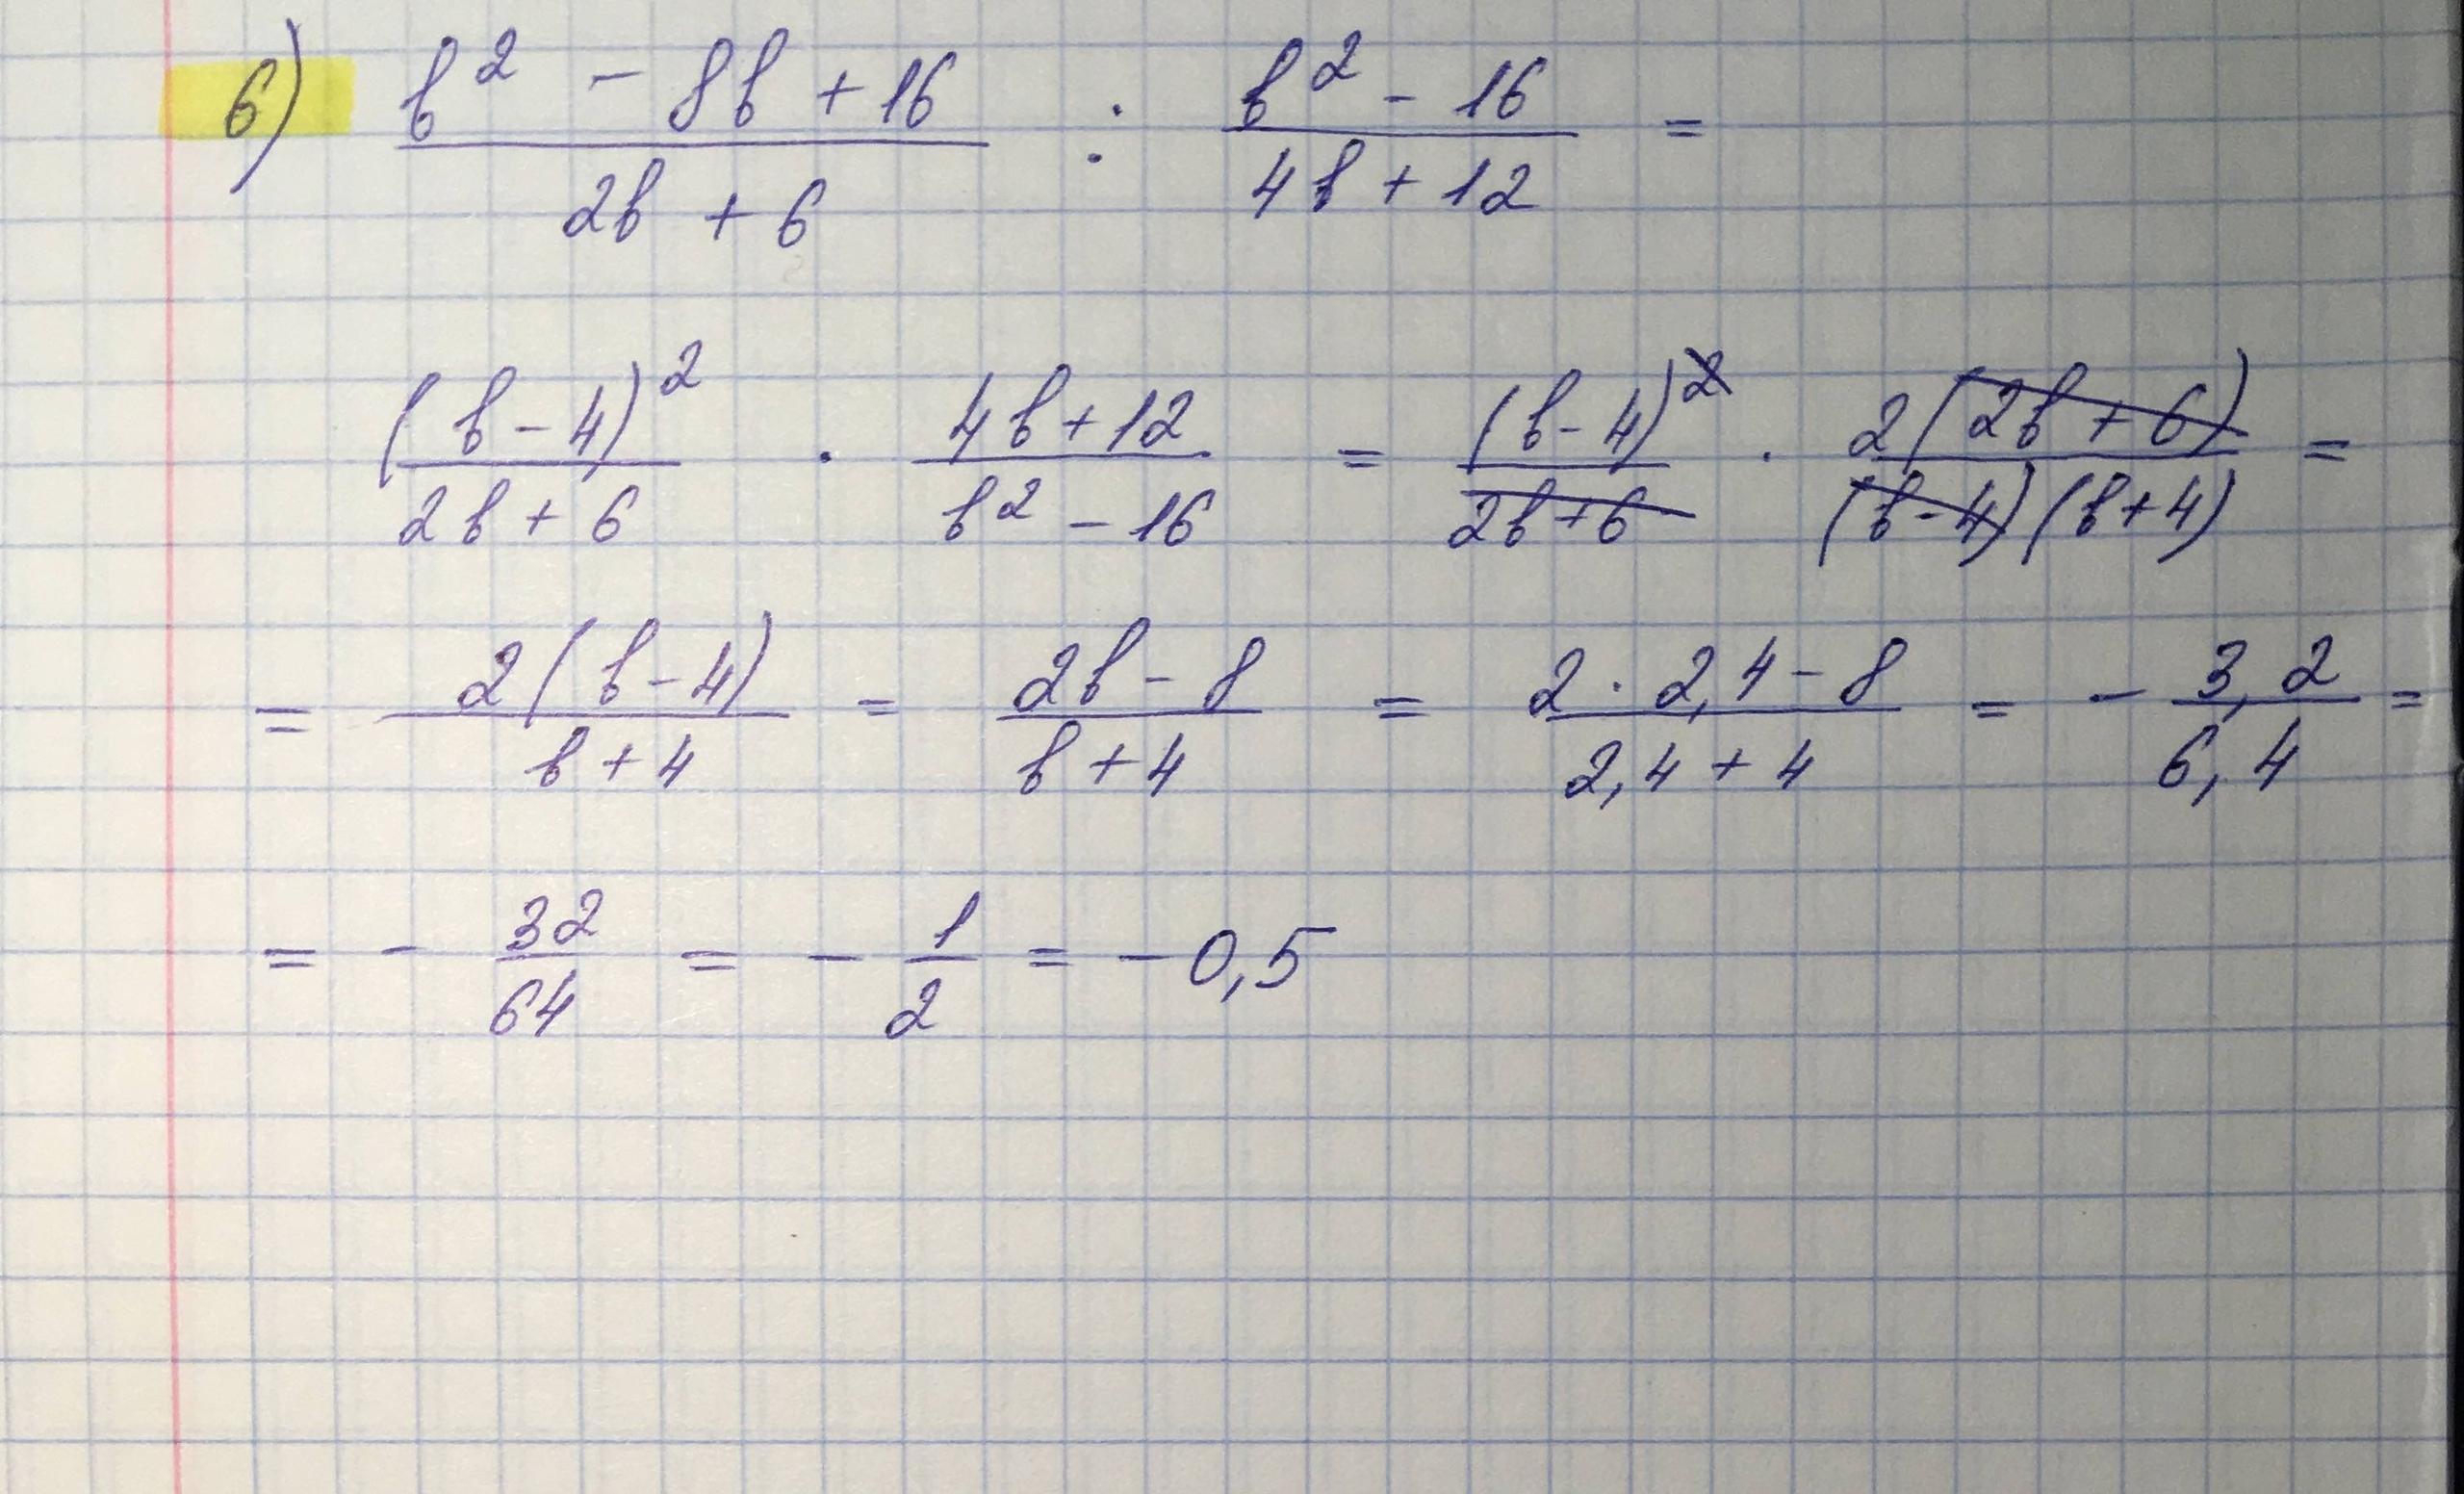 6) (b² - 8b + 16)/(2b + 6) : (b² - 16)/(4b + 12) =
(b - 4)²/(2b + 6) · (4b + 12)/(b² - 16) = (b - 4)²/(2b + 6) · 2(2b + 6)/((b - 4)(b + 4)) =
= 2(b - 4)/(b + 4) = (2b - 8)/(b + 4) = (2 · 2,4 - 8)/(2,4 + 4) = - 3,2/6,4 =
= - 32/64 = - 1/2 = - 0,5